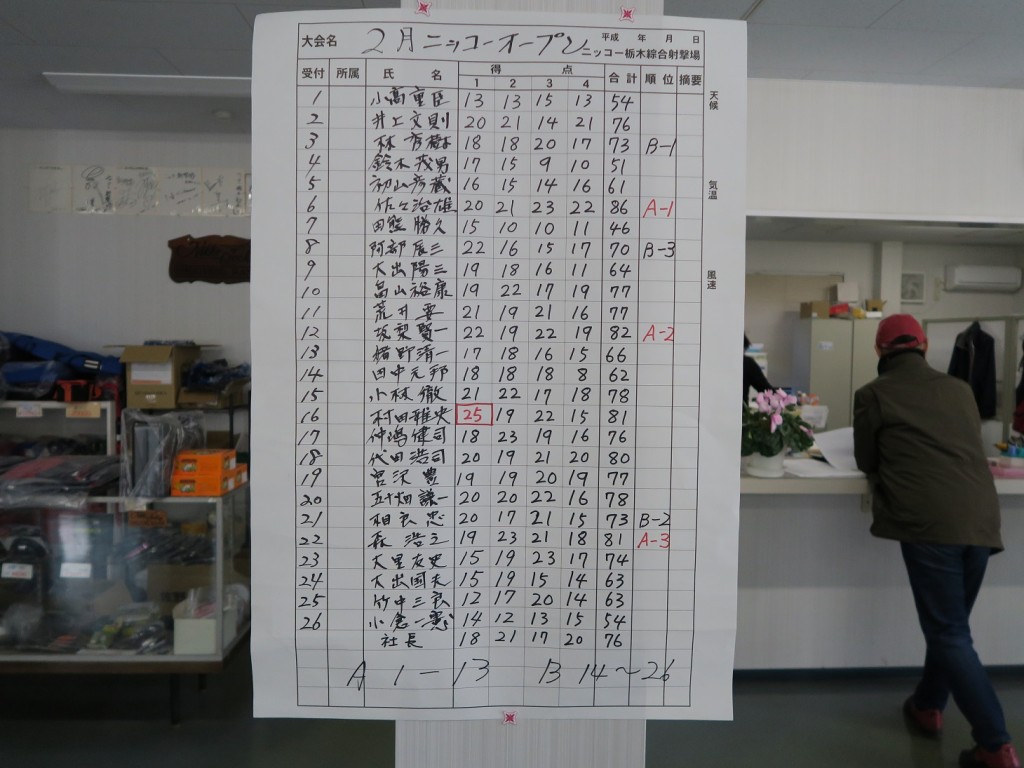 大会名 2月ニッコーオープン 平成 年 月 日
ニッコー栃木綜合射撃場
受付 所属 氏名 得点 合計 順位 摘要
1 2 3 4
1 小高重臣 13 13 15 13 54
2 井上文則 20 21 14 21 76
3 林 18 18 20 17 73 B-1
4 鈴木茂男 17 15 9 10 51
5 初山彦蔵 16 15 14 16 61
6 佐々治雄 20 21 23 22 86 A-1
7 田熊勝久 15 10 10 11 46
8 阿部辰三 22 16 15 17 70 B-3
9 大出陽三 19 18 16 11 64
10 畠山裕康 19 22 17 19 77
11 荒井 21 19 21 16 77
12 坂梨賢一 22 19 22 19 82 A-2
13 猪野清一 17 18 16 15 66
14 田中元邦 18 18 18 8 62
15 小林徹 21 22 17 18 78
16 村田雅央 25 19 22 15 81
17 仲嶋健司 18 23 19 16 76
18 代田浩司 20 19 21 20 80
19 宮沢豊 19 19 20 19 77
20 五十畑謙一 20 20 22 16 78
21 相良忠 20 17 21 15 73 B-2
22 森浩之 19 23 21 18 81 A-3
23 大里友史 15 19 23 17 74
24 大出国夫 15 19 15 14 63
25 竹中三良 12 17 20 14 63
26 小倉一憲 14 12 13 15 54
社長 18 21 17 20 76
A 1-13 B 14~26
天候
気温
風速